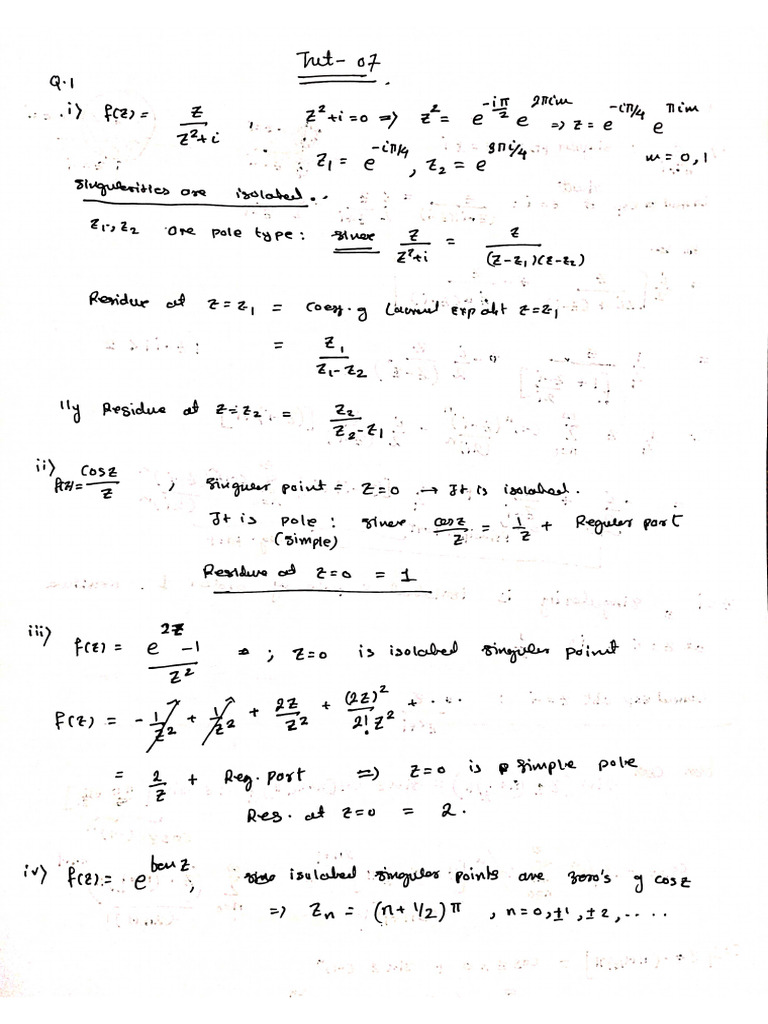 Tut- 07
Q.1
i) f(z) = z/(z²+i) , z²+i=0 ⇒ z² = e^(-iπ/2) e^(2πim) ⇒ z = e^(-iπ/4) e^(πim)
z₁ = e^(-iπ/4) , z₂ = e^(3πi/4) m = 0, 1
Singularities are isolated..
z₁, z₂ are pole type: since z/(z²+i) = z/((z-z₁)(z-z₂))
Residue at z=z₁ = coeff. of Laurent exp abt z=z₁
= z₁/(z₁-z₂)
lly Residue at z=z₂ = z₂/(z₂-z₁)
ii) f(z)= cosz/z ; Singular point = z=0 → It is isolated.
It is pole : since cosz/z = 1/z + Regular part
(simple)
Residue at z=0 = 1
iii) f(z) = (e^(2z) -1)/z² ; z=0 is isolated singular point
f(z) = -1/z² + 1/z² + 2z/z² + (2z)²/(2! z²) + ...
= 2/z + Reg. part ⇒ z=0 is simple pole
Res. at z=0 = 2.
iv) f(z) = e^(tan z) ; isolated singular points are zero's of cosz
⇒ zₙ = (n+1/2)π , n=0,±1,±2,....